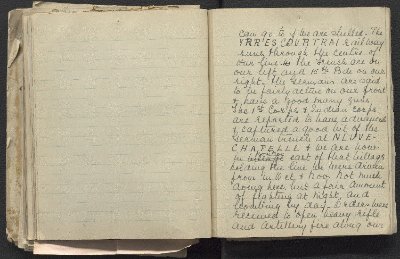 can go to if we are shelled. The
YPRES COURTRAI railway
runs through the centre of
our line. The French are on
our left and 15th Bde on our
right. The Germans are said
to be fairly active on our front
& have a good many guns.
The 1st Corps & Indian Corps
are reported to have advanced
& captured a good bit of the
German trench at NEUVE-
CHAPELLE & we are now
in east of that village
holding the line we were driven
from in Oct & Nov. Not much
doing here but a fair amount
of fighting at night, and
scouting by day. Orders were
received to open heavy rifle
and artillery fire along our